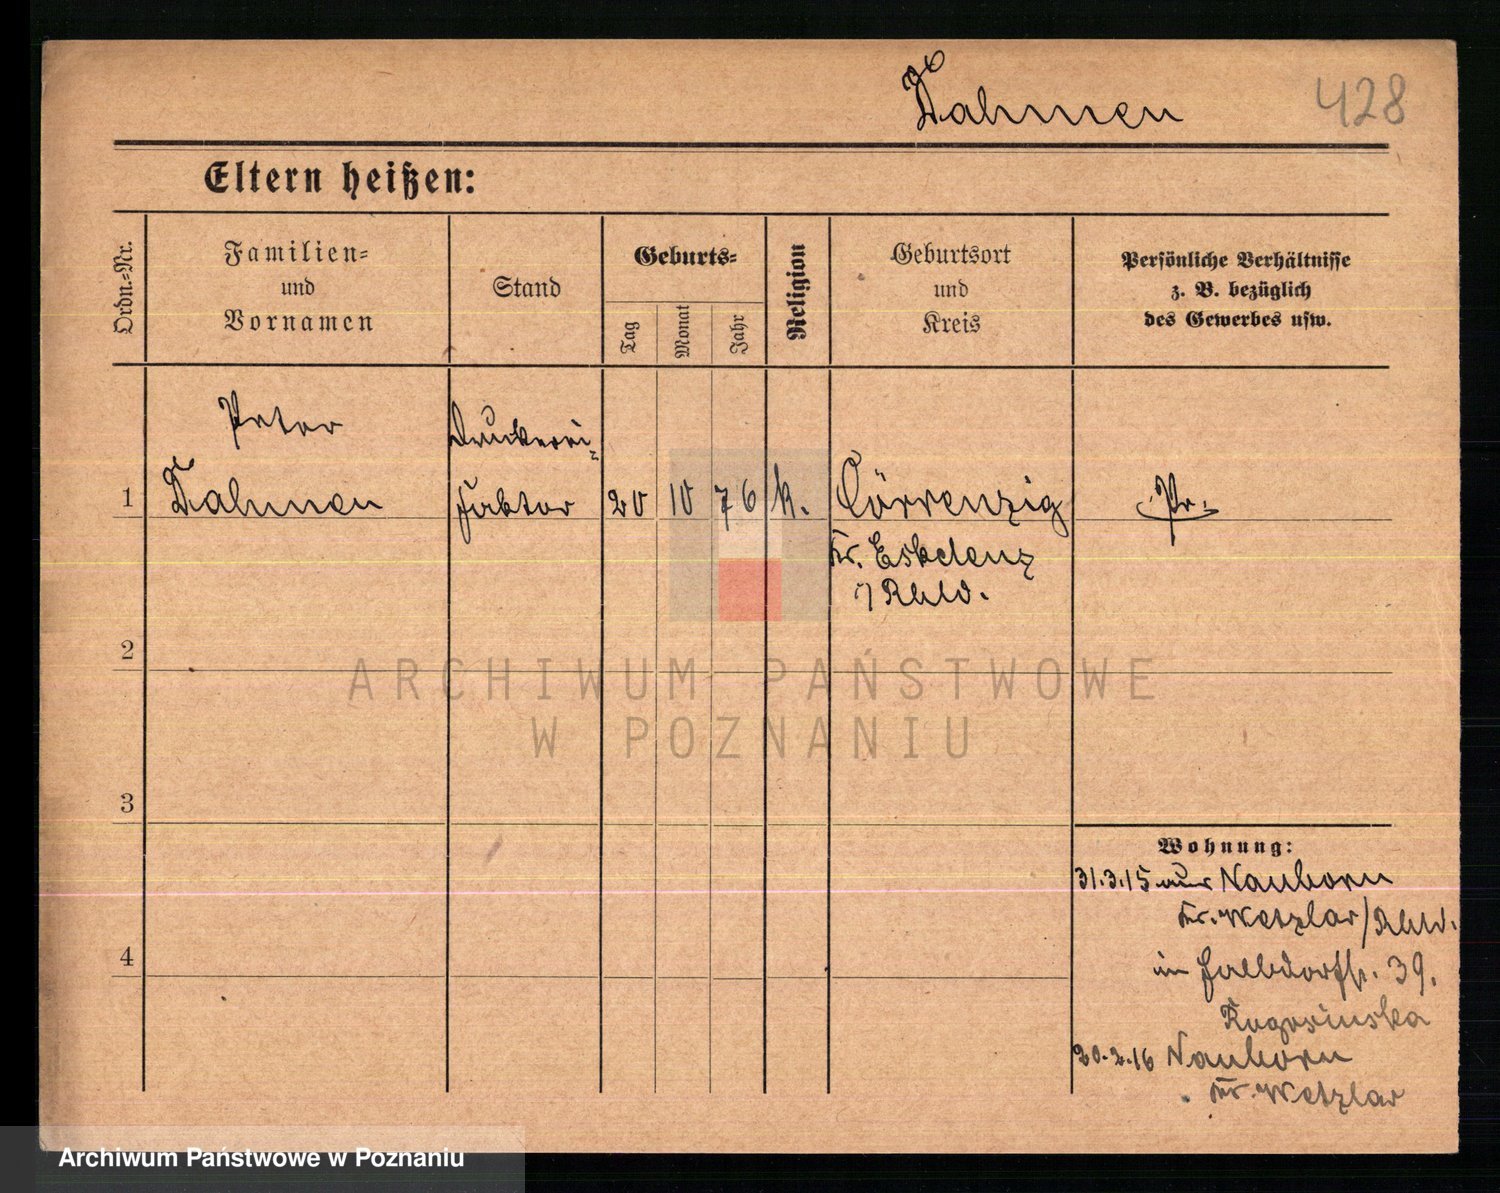 Dahmen
428
Eltern heißen:
Ordn.-Nr.
Familien-
und
Vornamen
Stand
Geburts-
Tag
Monat
Jahr
Religion
Geburtsort
und
Kreis
Persönliche Verhältnisse
z. B. bezüglich
des Gewerbes usw.
Peter
Dahmen
Druckerei-
Faktor
1
20
10
76
k.
Cörrenzig
Kr. Eskelenz
Rhld.
Pr.
2
3
4
Wohnung:
31.3.15 aus Nauborn
Kr. Wetzlar/Rhld.
in Halbdorfstr. 39.
20.2.16 Nauborn
Kr. Wetzlar
ARCHIWUM PAŃSTWOWE
W POZNANIU
Archiwum Państwowe w Poznaniu